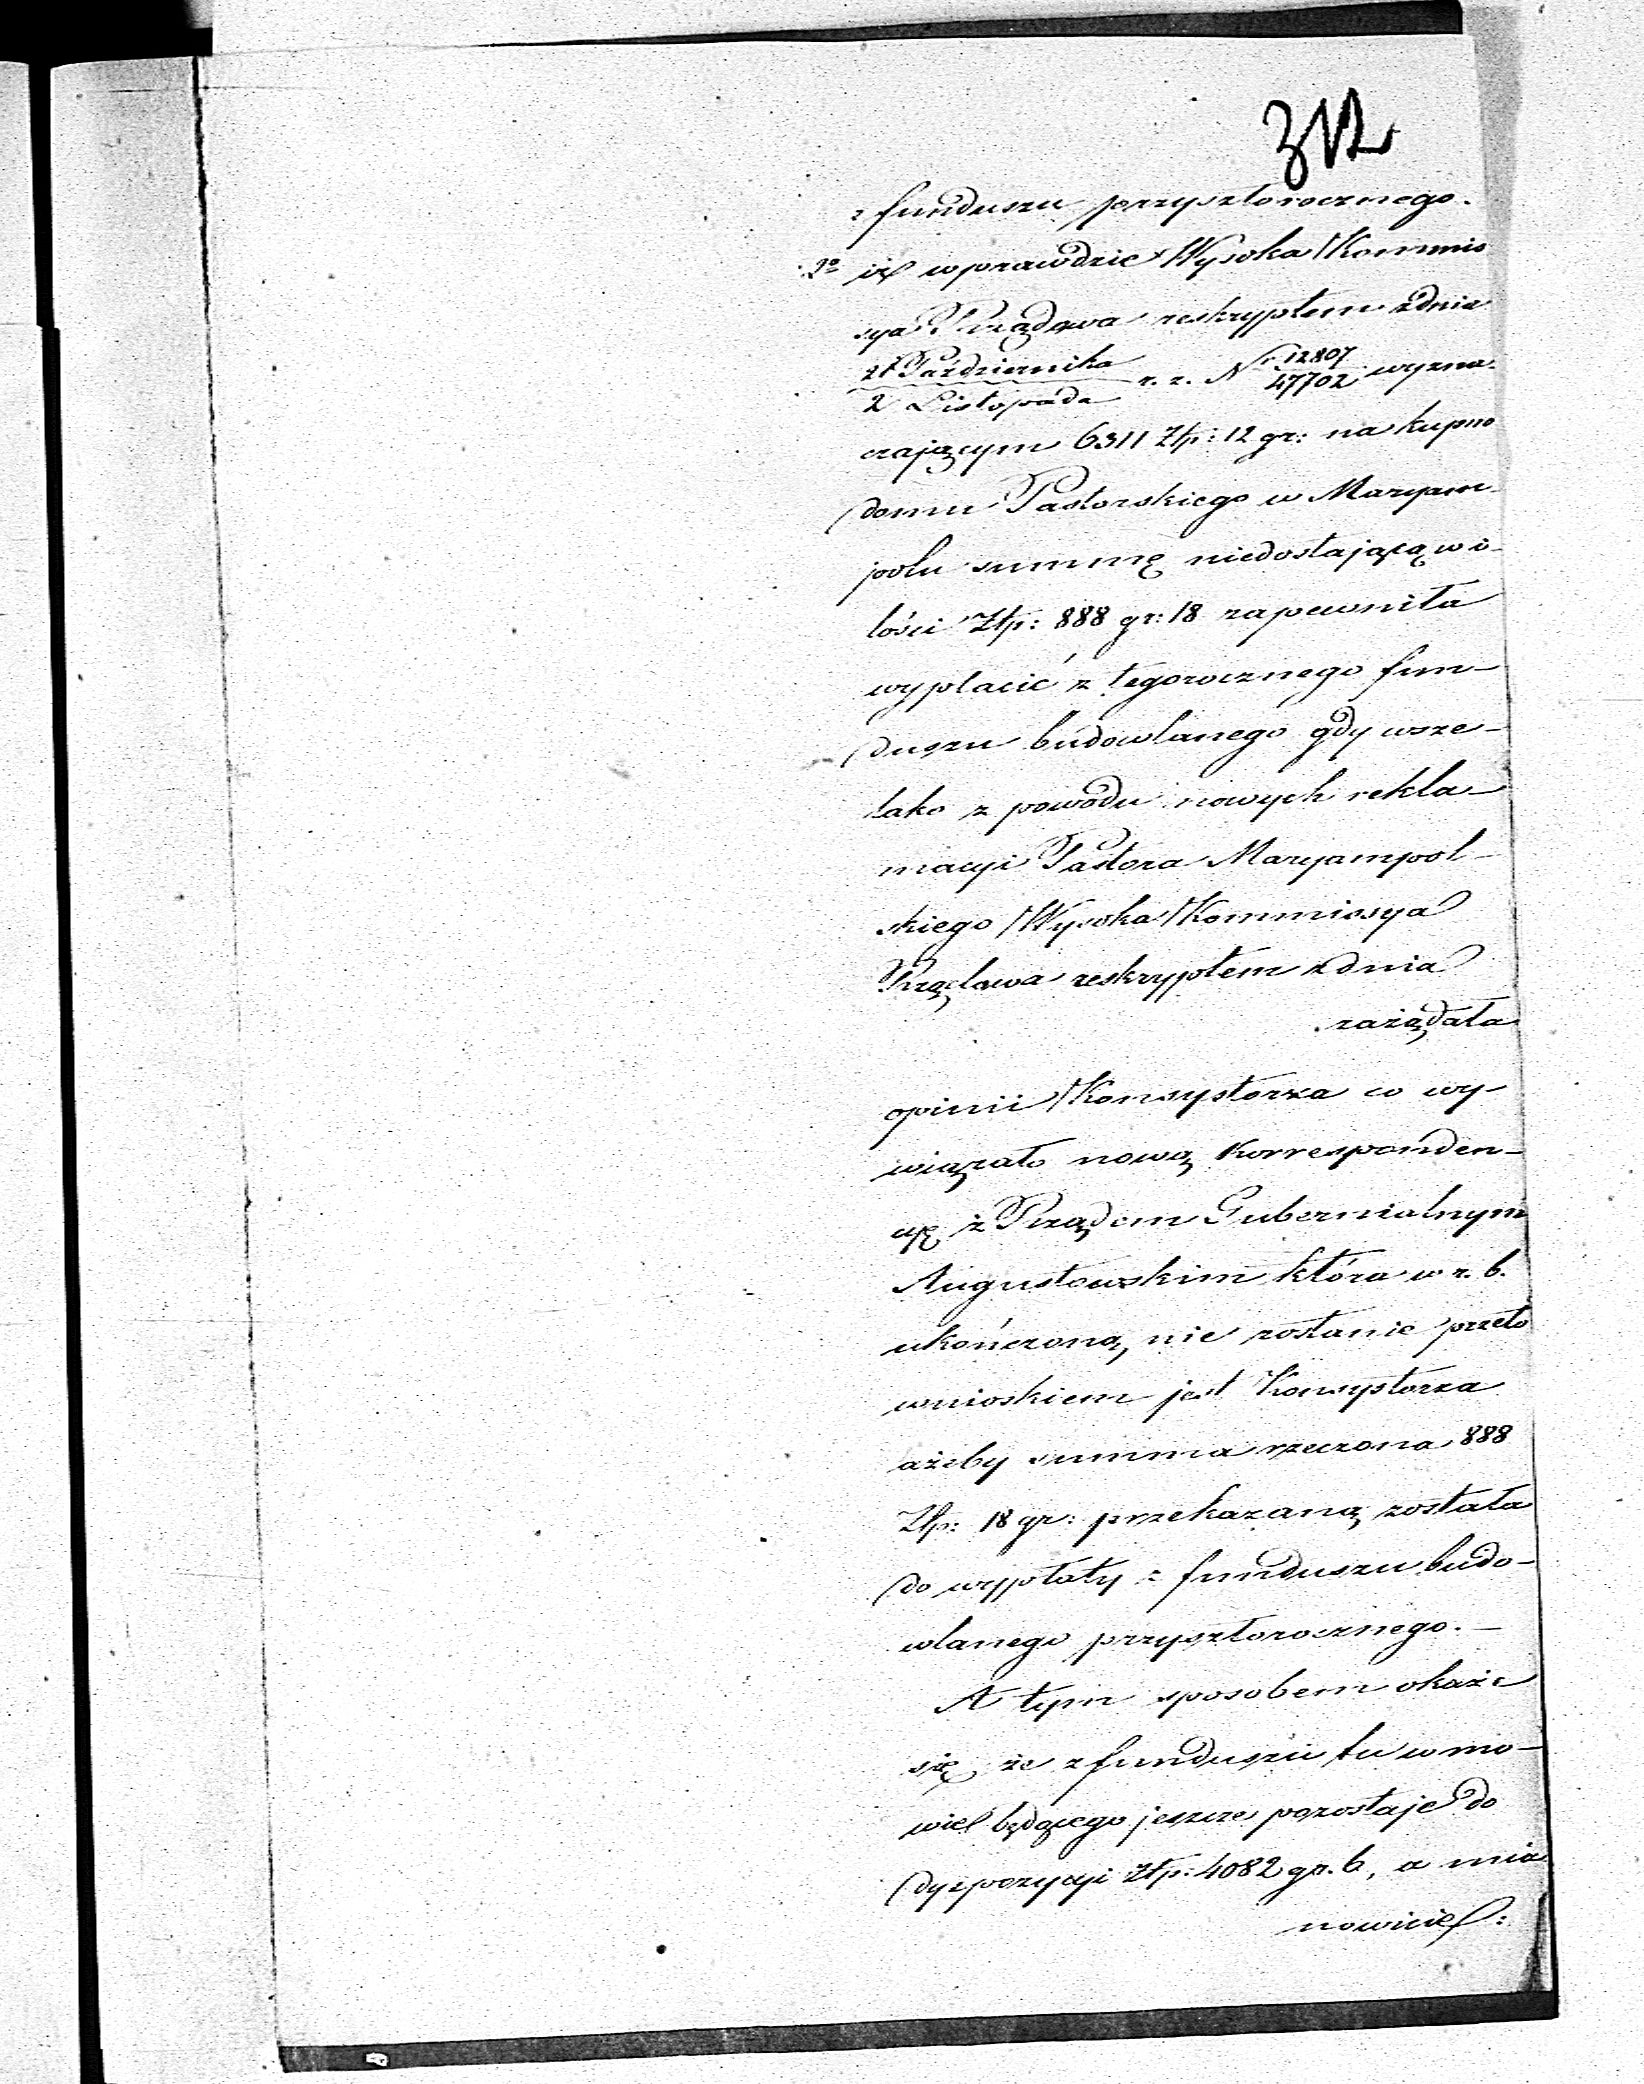 312
z funduszu przyszłorocznego.
2o iż wprawdzie Wysoka Kommis
sya Rządowa reskryptem z dnia
21 Października / 2 Listopada r. z. Nr 12807 / 47702 wyzna-
czającym 6311 Złp: 12 gr: na kupno
domu Pastorskiego w Maryam-
polu summę niedostającą w i-
lości Złp: 888 gr: 18 zapewniła
wypłacić z tegorocznego fun-
duszu budowlanego gdy wsze-
lako z powodu nowych rekla-
macyi Pastora Maryampol-
skiego Wysoka Kommissya
Rządowa reskryptem z dnia
zażądała
opinii Konsystorza co wy-
wiązało nową korresponden-
cyę z Rządem Gubernialnym
Augustowskim która w r. b.
ukończoną nie zostanie przeto
wnioskiem jest Konsystorza
ażeby summa rzeczona 888
Złp: 18 gr: przekazaną została
do wypłaty z funduszu budo-
wlanego przyszłorocznego. —
A tym sposobem okaże
się że z funduszu tu w mo-
wie będącego jeszcze pozostaje do
dyspozycyi Złp: 4082 gr. 6, a mia
nowicie: